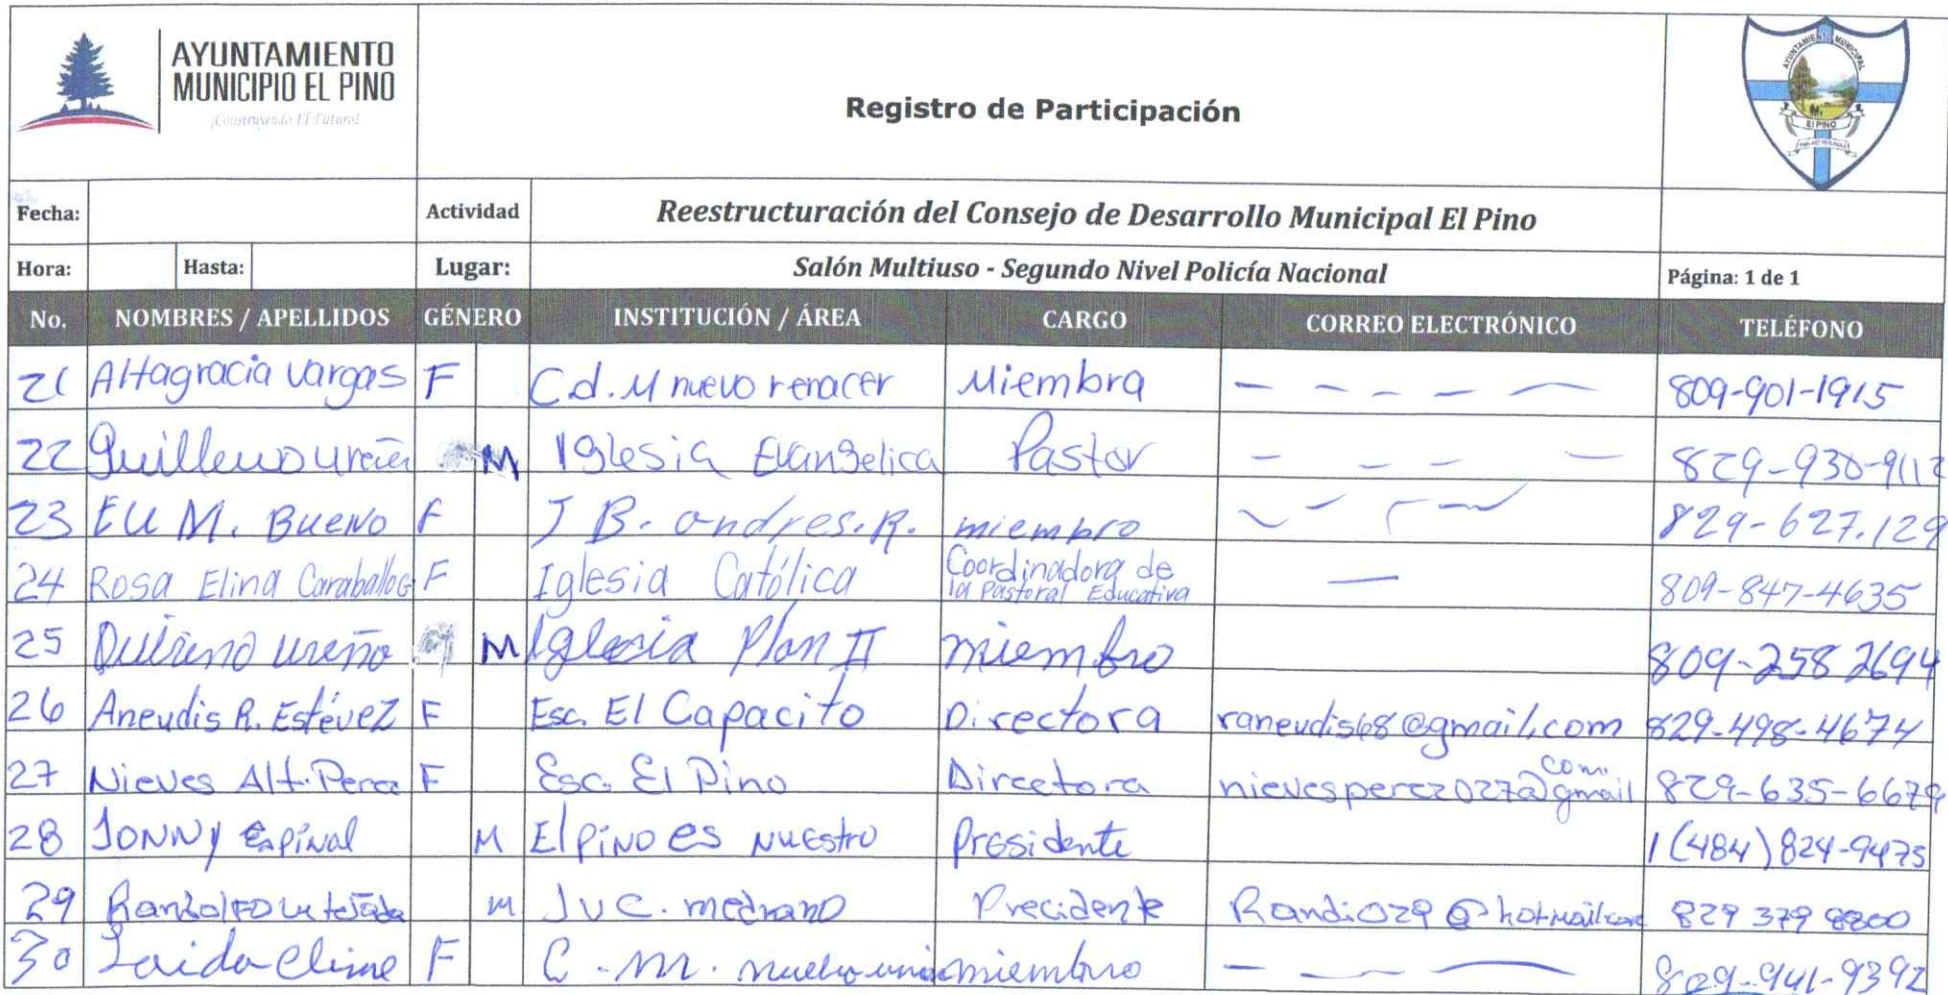 AYUNTAMIENTO
MUNICIPIO EL PINO
¡Construyendo El Futuro!
Registro de Participación
AYUNTAMIENTO MUNICIPAL
El PINO
Fecha: Actividad Reestructuración del Consejo de Desarrollo Municipal El Pino
Hora: Hasta: Lugar: Salón Multiuso - Segundo Nivel Policía Nacional Página: 1 de 1
No. NOMBRES / APELLIDOS GÉNERO INSTITUCIÓN / ÁREA CARGO CORREO ELECTRÓNICO TELÉFONO
21 Altagracia Vargas F Cd. M nuevo renacer Miembra - - - - - 809-901-1915
22 M Iglesia Evangelica Pastor - - - - 829-930-9112
23 M. BUENO F J B. andres. R. miembro 829-627.129
24 Rosa Elina Caraballo F Iglesia Católica Coordinadora de
la Pastoral Educativa — 809-847-4635
25 ureño M Iglesia Plan II miembro 809-258 2694
26 Aneudis R. Estévez F Esc. El Capacito Directora raneudis68@gmail.com 829-498-4674
27 Nieves Alt. Perez F Esc. El Pino Directora nievesperez027@gmail com. 829-635-6679
28 JONNY Espinal M El PINO es NUEStro Presidente 1 (484) 824-9475
29 M JUC. medrano Precidente Randi029@hotmail.com 829 379 8800
30 F C.M. miembro - - — 809-941-9392